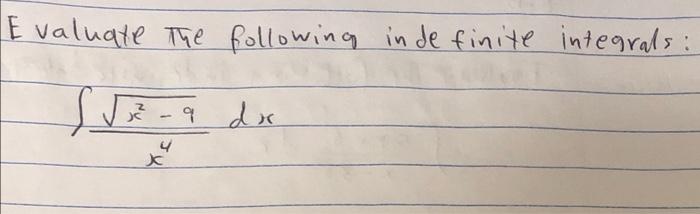 Evaluate The following indefinite integrals:
∫ √(x² - 9) / x⁴ dx